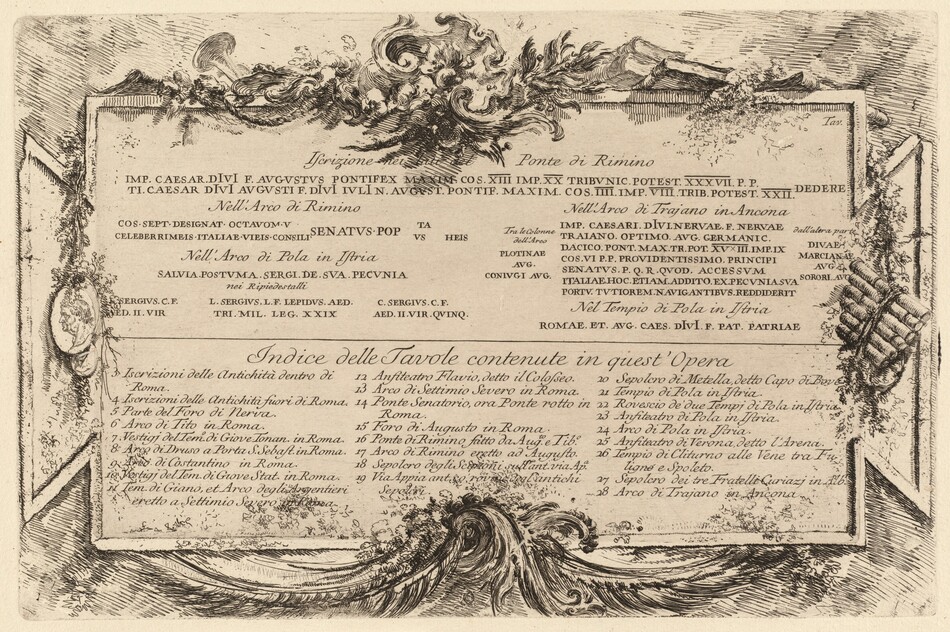 Tav.
Iscrizione nei Ponte di Rimino
IMP. CAESAR.DIVI F. AVGVSTVS PONTIFEX MAXIM COS. XIII IMP. XX TRIBVNIC. POTEST. XXXVII. P. P.
TI. CAESAR DIVI AVGVSTI F. DIVI IVLI N. AVGVST. PONTIF. MAXIM. COS. IIII. IMP. VIII TRIB. POTEST. XXII. DEDERE
Nell'Arco di Rimino
COS · SEPT · DESIGNAT · OCTAVOM · V
CELEBERRIMEIS · ITALIAE · VIEIS · CONSILI SENATVS · POP
TA
VS HEIS
Nell'Arco di Pola in Istria
SALVIA. POSTVMA. SERGI. DE. SVA. PECVNIA
nei Ripiedestalli
L. SERGIVS. C. F.
AED. II. VIR
L. SERGIVS. L. F. LEPIDVS. AED.
TRI. MIL. LEG. XXIX
C. SERGIVS. C. F.
AED. II. VIR. QVINQ.
Nell'Arco di Trajano in Ancona
Tra le Colonne
dell'Arco
PLOTINAE
AVG.
CONIVGI AVG.
IMP. CAESARI. DIVI. NERVAE. F. NERVAE
TRAIANO. OPTIMO. AVG. GERMANIC.
DACICO. PONT. MAX. TR. POT. XVIIII. IMP. IX
COS. VI P. P. PROVIDENTISSIMO. PRINCIPI
SENATVS. P. Q. R. QVOD. ACCESSVM
ITALIAE. HOC. ETIAM. ADDITO. EX. PECVNIA SVA
PORTV. TVTIOREM. NAVIGANTIBVS. REDDIDERIT
dall'altra parte
DIVAE
MARCIANAE
AVG
SORORI. AVG
Nel Tempio di Pola in Istria
ROMAE. ET. AVG. CAES. DIVI. F. PAT. PATRIAE
Indice delle Tavole contenute in quest'Opera
3 Iscrizioni delle Antichità dentro di
Roma.
4 Iscrizioni delle Antichità fuori di Roma.
5 Parte del Foro di Nerva.
6 Arco di Tito in Roma.
7 Vestigj del Tem. di Giove Tonan. in Roma.
8 Arco di Druso a Porta S. Sebast. in Roma.
9 Arco di Costantino in Roma.
10 Vestigj del Tem. di Giove Stat. in Roma.
11 Tem. di Giano, et Arco degli Argentieri
eretto a Settimio Severo in Roma.
12 Anfiteatro Flavio, detto il Colosseo.
13 Arco di Settimio Severo in Roma.
14 Ponte Senatorio, ora Ponte rotto in
Roma.
15 Foro di Augusto in Roma.
16 Ponte di Rimino fatto da Aug. e Tib.
17 Arco di Rimino eretto ad Augusto.
18 Sepolcro degli Scipioni sull'ant. via Ap.
19 Via Appia antichi
Sepolcri
20 Sepolcro di Metella, detto Capo di Bove
21 Tempio di Pola in Istria.
22 Rovescio de' due Tempj di Pola in Istria
23 Anfiteatro di Pola in Istria.
24 Arco di Pola in Istria.
25 Anfiteatro di Verona, detto l'Arena.
26 Tempio di Cliturno alle Vene tra Fu-
ligno e Spoleto.
27 Sepolcro dei tre Fratelli Curiazj in Alb.
28 Arco di Trajano in Ancona